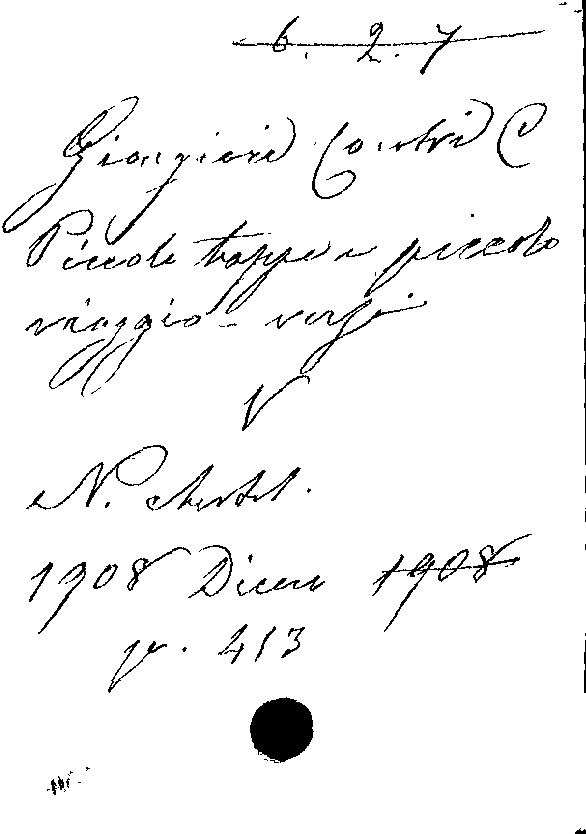 6. 2. 7
Giangiorgi Contri C
Piccole tappe piccolo
viaggio - versi
V
N. Antol.
1908 Dicem 1908
p. 413